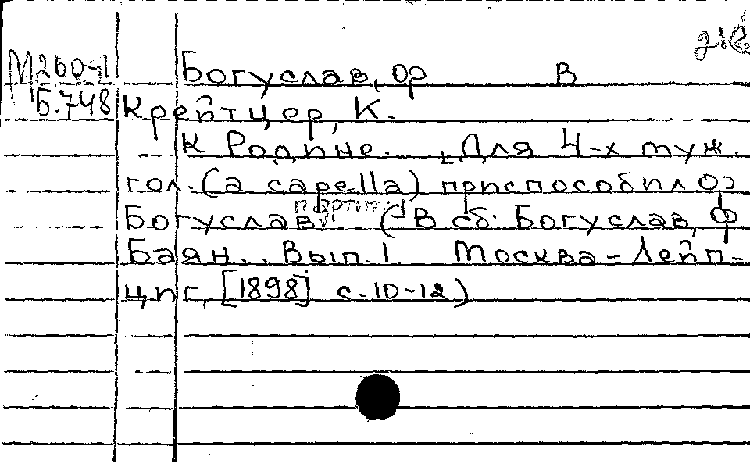 М260-1 Богуслав, ор В
Б.748 Крейтцер, К.
К Родине. Для 4-х муж.
гол. (a capella) приспособил
Богуслав. (В сб: Богуслав, Ф
Баян. Вып. 1 Москва-Лейп-
циг, [1898] с.10-12)